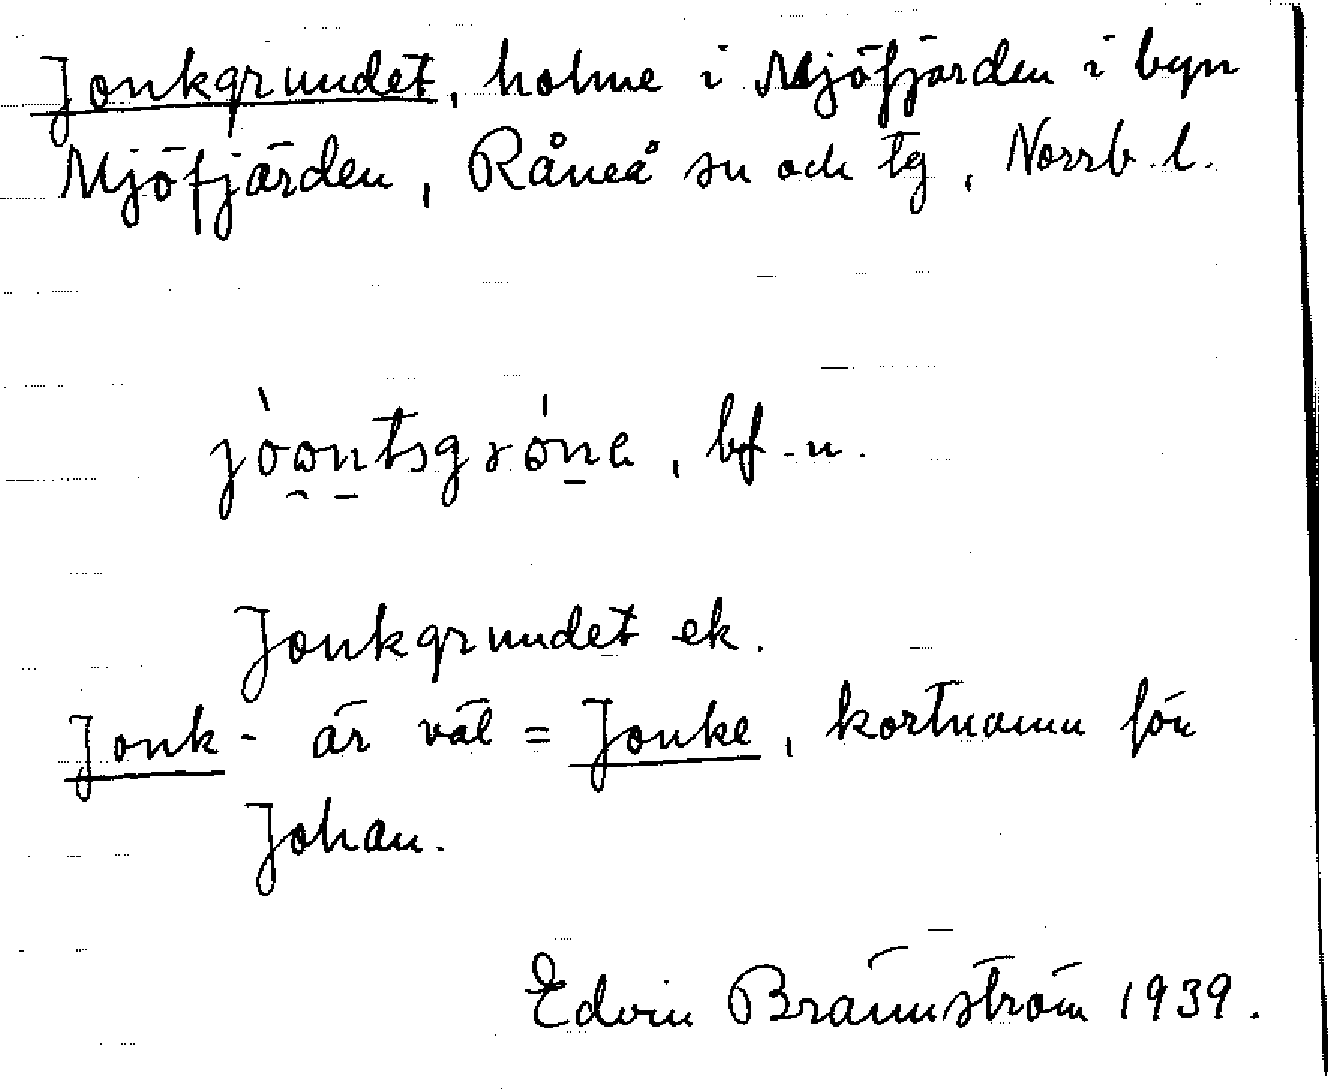 Jonkgrundet, holme i Mjöfjärden i byn
Mjöfjärden, Råneå sn och tg, Norrb. l.
jòo̯n̠tsgrón̠e, bf. n.
Jonkgrundet ek.
Jonk- är väl = Jonke, kortnamn för
Johan.
Edvin Brännström 1939.